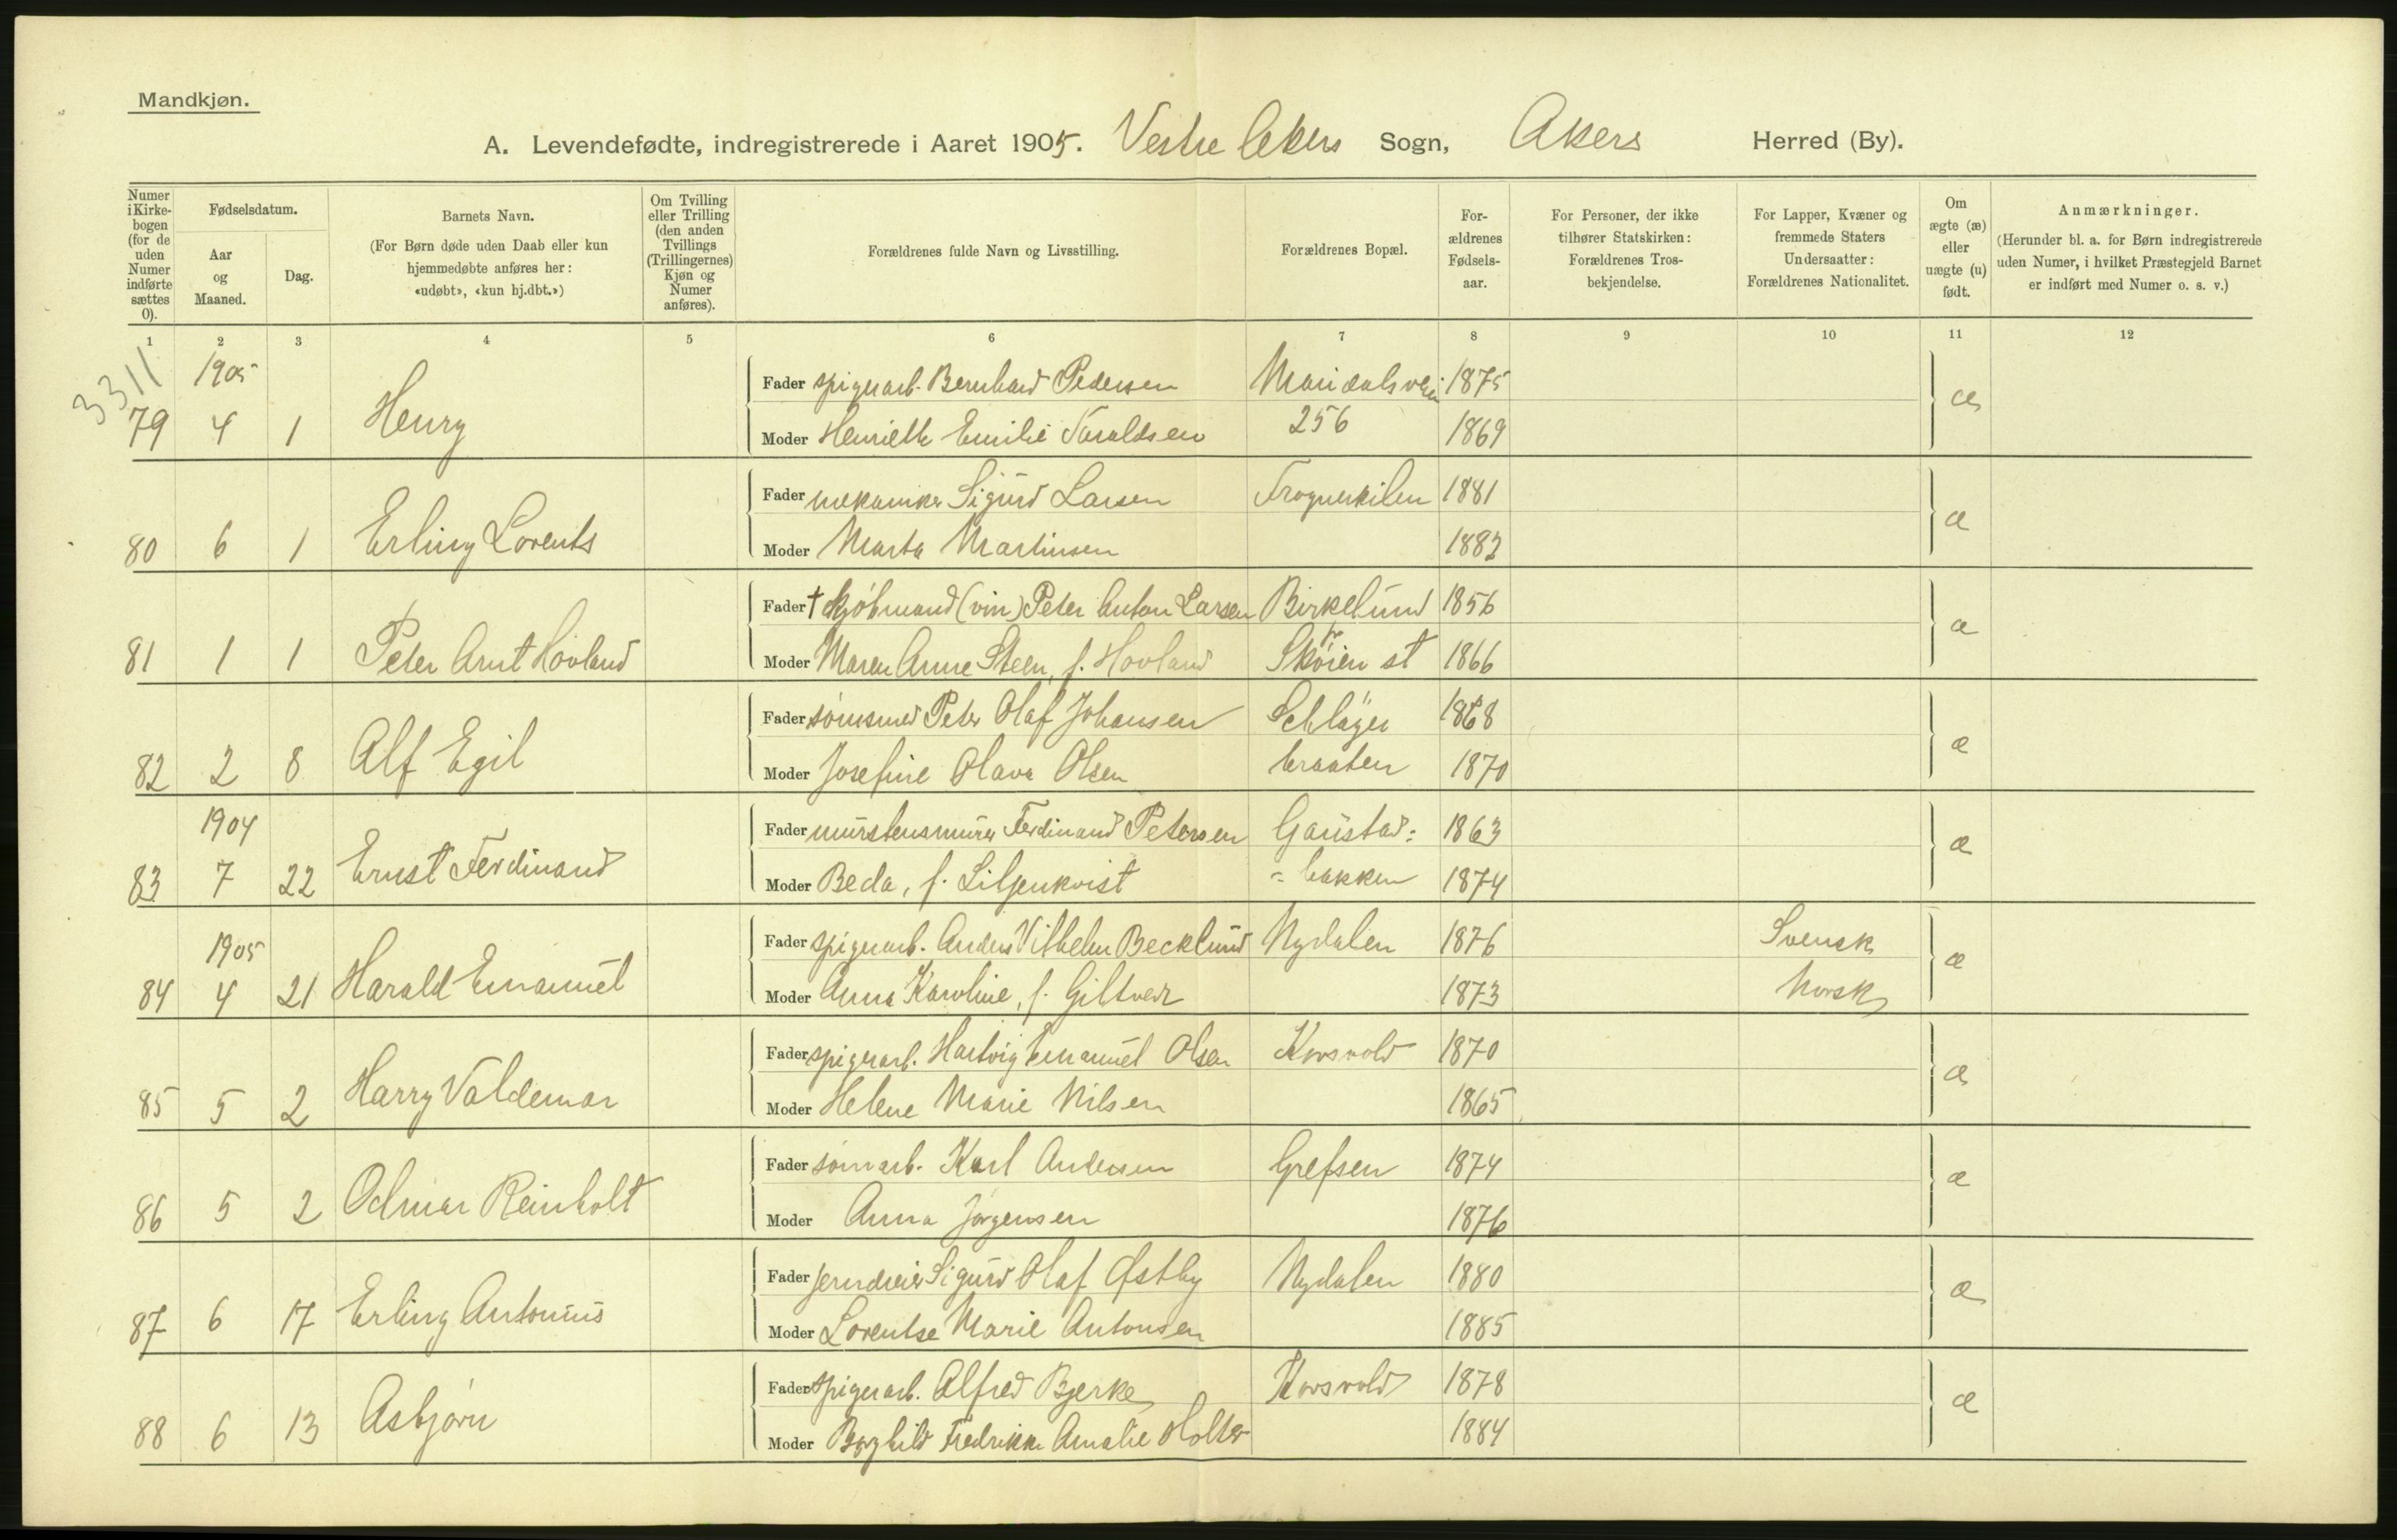 Mandkjøn.
A. Levendefødte, indregistrerede i Aaret 1905. Vestre Akers Sogn, Akers Herred (By).
Numer i Kirkebogen (for de uden Numer indførte sættes 0).
Fødselsdatum.
Aar og Maaned.
Dag.
Barnets Navn.
(For Børn døde uden Daab eller kun hjemmedøbte anføres her: «udøbt», «kun hj.dbt.»)
Om Tvilling eller Trilling (den anden Tvillings (Trillingernes) Kjøn og Numer anføres).
Forældrenes fulde Navn og Livsstilling.
Forældrenes Bopæl.
Forældrenes Fødselsaar.
For Personer, der ikke tilhører Statskirken: Forældrenes Trosbekjendelse.
For Lapper, Kvæner og fremmede Staters Undersaatter: Forældrenes Nationalitet.
Om ægte (æ) eller uægte (u) født.
Anmærkninger.
(Herunder bl. a. for Børn indregistrerede uden Numer, i hvilket Præstegjeld Barnet er indført med Numer o. s. v.)
1 2 3 4 5 6 7 8 9 10 11 12
3311
1905
Fader spigerarb. Bernhard Pedersen Maridalsvein 1875
79 4 1 Henry æ
Moder Henriette Emilie Taraldsen 256 1869
Fader mekaniker Sigurd Larsen Frognerkilen 1881
80 6 1 Erling Lorents æ
Moder Marta Martinsen 1882
Fader † kjøbmand (vin) Peter Anton Larsen Birkelund 1856
81 1 1 Peter Arnt Hovland æ
Moder Maren Anne Steen, f. Hovland pr Skøien st 1866
Fader sømsmed Peter Olaf Johansen Schläger 1868
82 2 8 Alf Egil æ
Moder Josefine Olava Olsen braaten 1870
1904
Fader murstensmurer Ferdinand Petersen Gaustad: 1863
83 7 22 Ernst Ferdinand æ
Moder Beda, f. Liljenkvist = bakken 1874
1905
Fader spigerarb. Anders Vilhelm Becklund Nydalen 1876 Svensk
84 4 21 Harald Emanuel æ
Moder Anna Karoline, f. Giltvedt 1873 Norsk
Fader spigerarb. Hartvig Emanuel Olsen Korsvold 1870
85 5 2 Harry Valdemar æ
Moder Helene Marie Nilsen 1865
Fader sømarb. Karl Andersen Grefsen 1874
86 5 2 Odmar Reinholt æ
Moder Anna Jørgensen 1876
Fader jerndreier Sigurd Olaf Østby Nydalen 1880
87 6 17 Erling Antonius æ
Moder Lorentse Marie Antonsen 1885
Fader spigerarb. Alfred Bjerke Korsvold 1878
88 6 13 Asbjørn æ
Moder Borghild Fredrikke Amalie Holter 1884